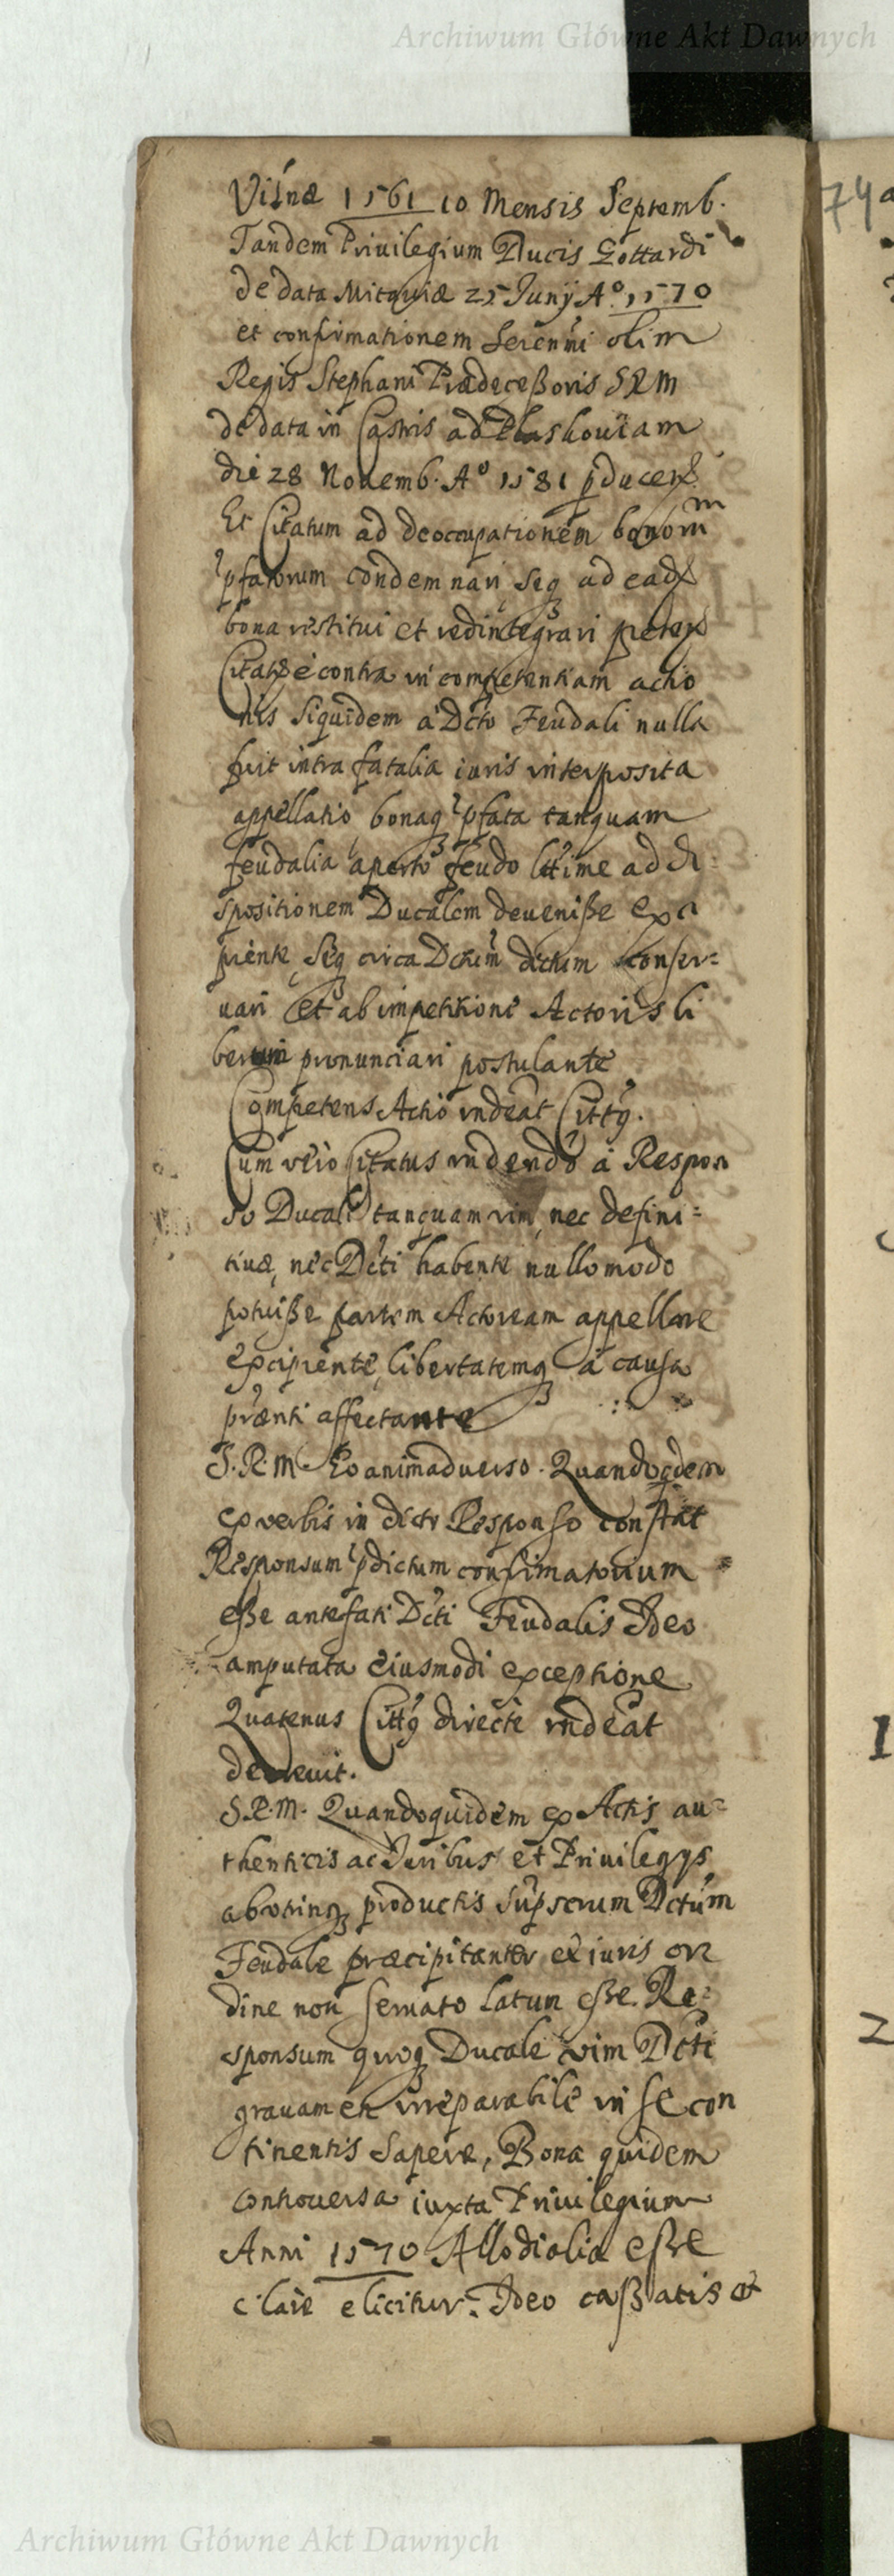 Archiwum Główne Akt Dawnych
Vilnæ 1561 10 Mensis Septemb.
Tandem Priuilegium Ducis Gottardi
de data Mitauiæ 25 Junÿ A⁰. 1570
et confirmationem Serenmi olim
Regis Stephani Prædeceßoris SRM
de data in Castris ad Pleskouiam
die 28 Nouemb. A⁰ 1581 pducen
Et Citatum ad deoccupationem bonom
pfatorum condemnari seq ad ead
bona restitui et redintegrari peten
Citat è contra incompetentiam actio
nis siquidem a Dcto Feudali nulla
fuit intra fatalia iuris interposita
appellatio, bonaq pfata tanquam
feudalia aperto feudo lttime ad di
spositionem Ducalem deueniße exci
piente, Seq circa Dctum dictum conser=
uari et ab impetitione Actoris li
berum pronunciari postulante
Competens Actio rndeat Citty.
Cum vero Citatus rndendo a Respon
so Ducali tanquam vim, nec defini=
tiuæ, nec Dcti habente nullomodo
potuiße partem Actoream appellare
excipiente, libertatemq a causa
prænti affectante
S.R.M. Eo animaduerso. Quandoqdem
ex verbis in dicto Responso constat
Responsum pdictum confirmatorium
eße antefati Dcti Feudalis Ideo
amputata eiusmodi exceptione
Quatenus Citty directe rndeat
decreuit.
S.R.M. Quandoquidem ex Actis au=
thenticis ac Juribus et Priuilegys
abutrinq productis supscrum Dctum
Feudale præcipitanter et iuris or
dine non seruato latum eße. Re=
sponsum quoq Ducale vim Dcti
grauamen irreparabile in se con
tinentis sapere, Bona quidem
controuersa iuxta Priuilegium
Anni 1570 Allodialia eße
clare elicitur. Ideo caßatis et
74
1
2
Archiwum Główne Akt Dawnych